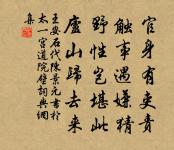 官身有吏責
觸事遇嫌猜
野性豈堪此
廬山歸去來
王安石代陳景元書於
太一宮道院壁詞典網
集